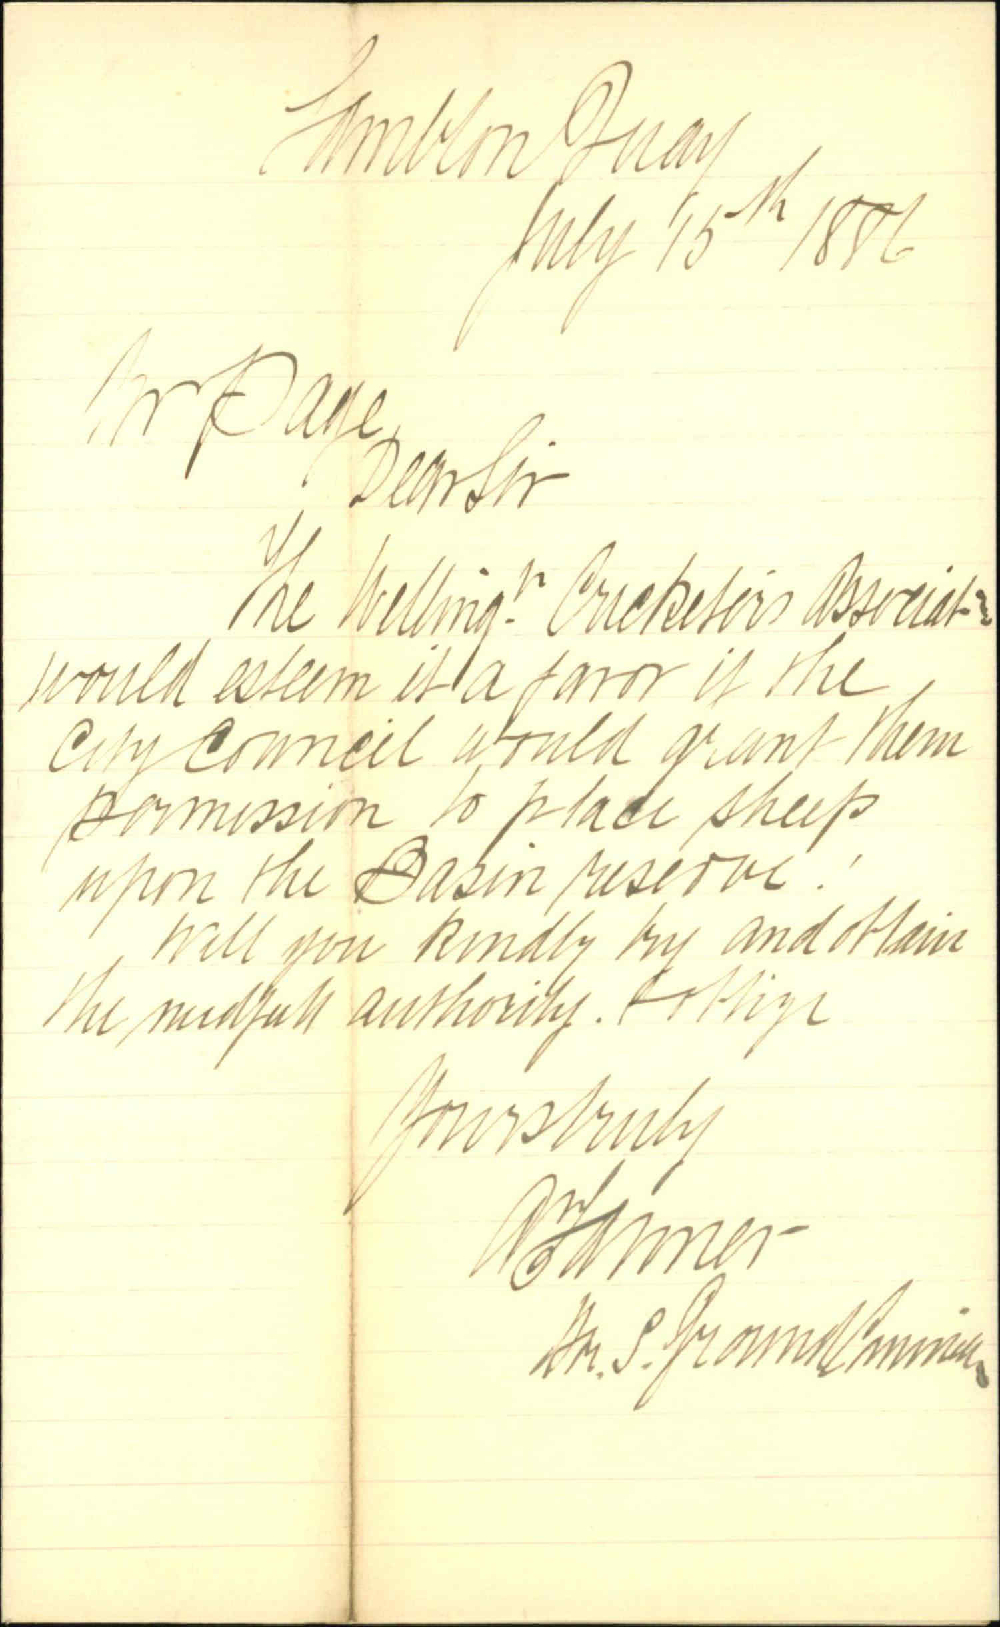 Lambton Quay
July 15th 1886
Mr Page
Dear Sir
The Welling.n Cricketers Associatn
would esteem it a favor if the
City Council would grant them
permission to place sheep
upon the Basin reserve.
Will you kindly try and obtain
the needfull authority. & oblige
Yours truly
Tanner
Hr. S. Ground